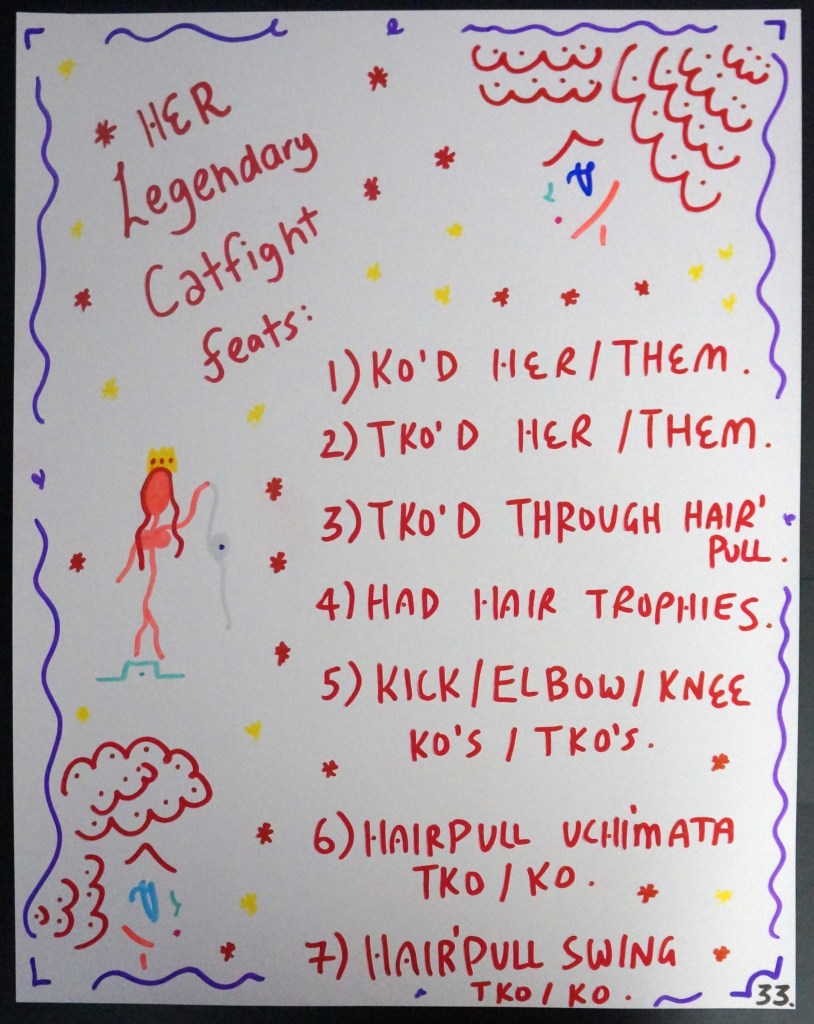 HER
Legendary
Catfight
feats:
1) KO'D HER / THEM.
2) TKO'D HER / THEM.
3) TKO'D THROUGH HAIR'
PULL.
4) HAD HAIR TROPHIES.
5) KICK / ELBOW / KNEE
KO'S / TKO'S.
6) HAIRPULL UCHIMATA
TKO / KO.
7) HAIR'PULL SWING
TKO / KO.
33.